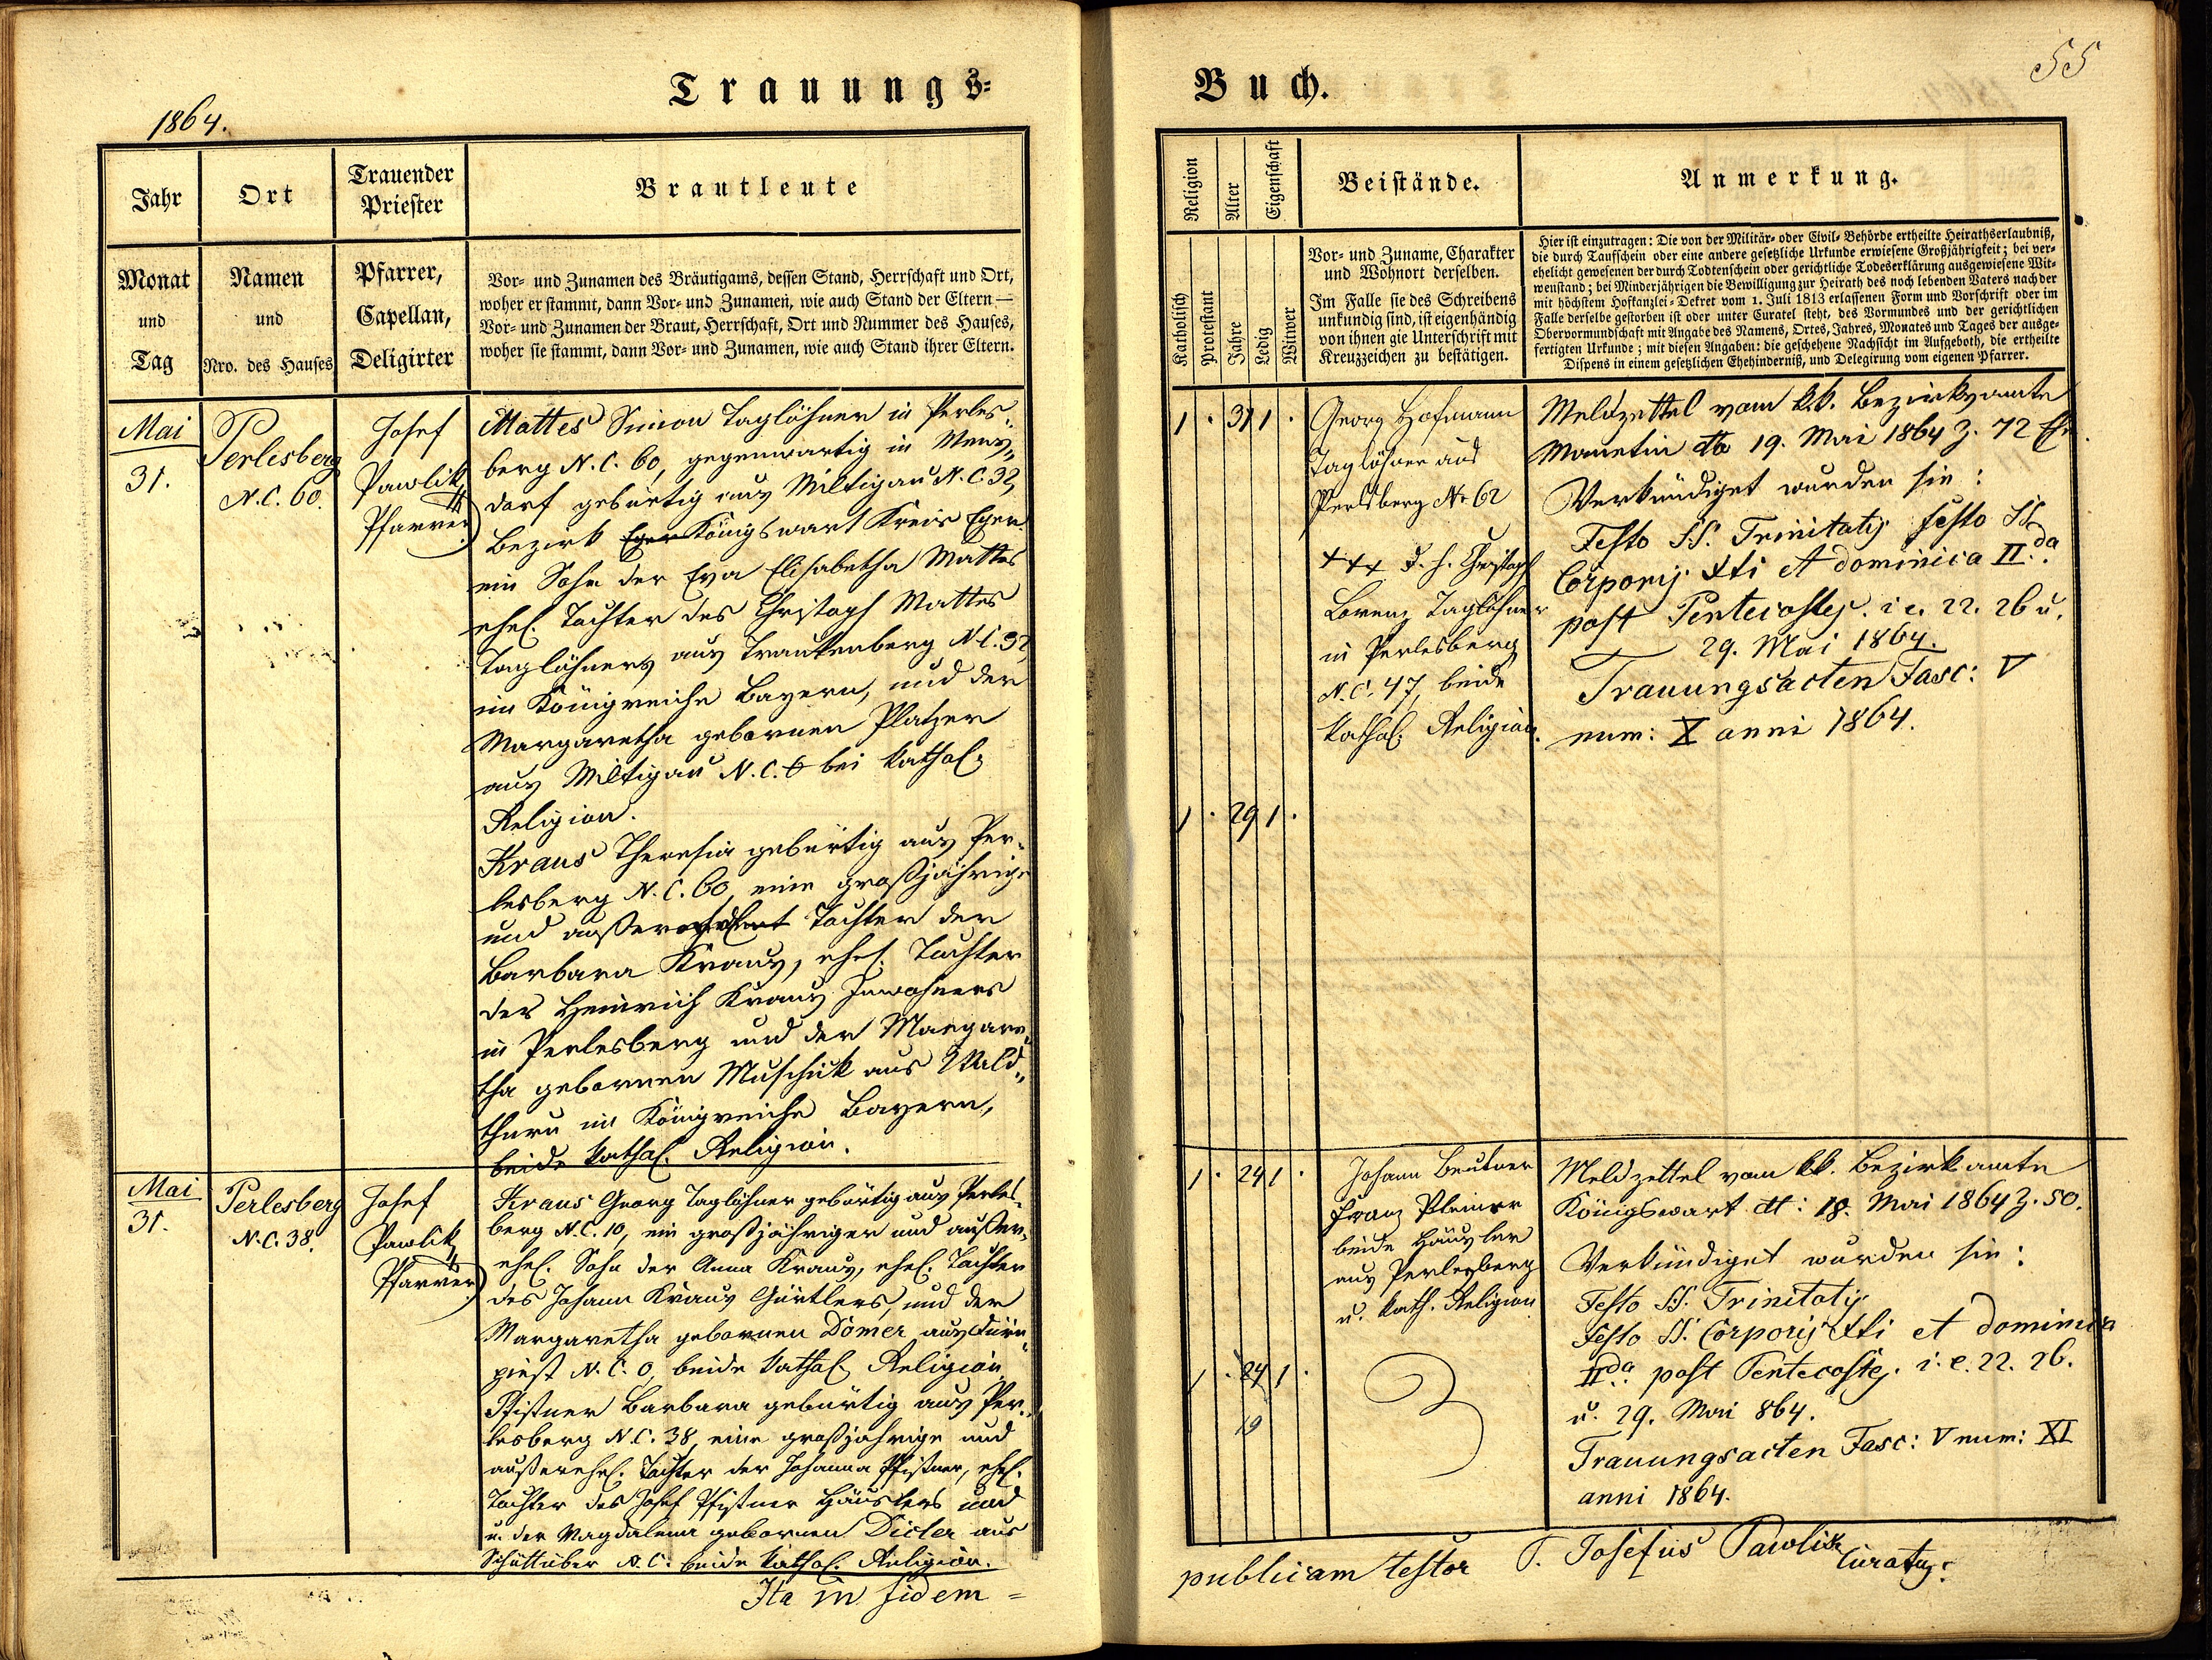 Trauungs=
1864.
Jahr
Ort
Trauender
Priester
Brautleute
Monat
und
Tag
Namen
und
Nro. des Hauses
Pfarrer,
Capellan,
Deligirter
Vor- und Zunamen des Bräutigams, dessen Stand, Herrschaft und Ort,
woher er stammt, dann Vor- und Zunamen, wie auch Stand der Eltern —
Vor- und Zunamen der Braut, Herrschaft, Ort und Nummer des Hauses,
woher sie stammt, dann Vor- und Zunamen, wie auch Stand ihrer Eltern.
Mai
31.
Perlesberg
N.C. 60.
Josef
Pawlik,
Pfarrer
Mattes Simon Taglöhner in Perles-
berg N.C. 60, gegenwärtig in
dorf gebürtig aus Miltigau N.C. 32,
Bezirk Eger Königswart Kreis Eger
ein Sohn der Eva Elisabetha Mattes
ehel. Tochter des Christoph Mattes
Taglöhners aus Trautenberg N.C. 32
im Königreiche Bayern, und der
Margaretha gebornen Platzer
aus Miltigau N.C. 6 bei kathol.
Religion.
Kraus Theresia gebürtig aus Per-
lesberg N.C. 60, eine großjährige
und außer Tochter der
Barbara Kraus, ehel. Tochter
des Heinrich Kraus Inwohners
in Perlesberg und der Margare-
tha gebornen Muschik aus Wald-
thurn im Königreiche Bayern,
beide kathol. Religion.
Mai
31.
Perlesberg
N.C. 38.
Josef
Pawlik,
Pfarrer
Kraus Georg Taglöhner gebürtig aus Perles-
berg N.C. 10, ein großjähriger und außer-
ehel. Sohn der Anna Kraus, ehel. Tochter
des Johann Kraus Gürtlers, und der
Margaretha gebornen Dömer aus
N.C. 0, beide kathol. Religion
Pfistner Barbara gebürtig aus Per-
lesberg N.C. 38, eine großjährige und
außerehel. Tochter der Johanna Pfistner, ehel.
Tochter des Josef Pfistner Häuslers und
u. der Magdalena gebornen Dicler aus
Schüttüber N.C. beide kathol. Religion.
Ita in fidem =
Buch.
55
Religion
Alter
Eigenschaft
Beistände.
Anmerkung.
Katholisch
Protestant
Jahre
Ledig
Witwer
Vor- und Zuname, Charakter
und Wohnort derselben.
Im Falle sie des Schreibens
unkundig sind, ist eigenhändig
von ihnen gie Unterschrift mit
Kreuzzeichen zu bestätigen.
Hier ist einzutragen: Die von der Militär- oder Civil-Behörde ertheilte Heirathserlaubniß,
die durch Taufschein oder eine andere gesetzliche Urkunde erwiesene Großjährigkeit; bei ver-
ehelicht gewesenen der durch Todtenschein oder gerichtliche Todeserklärung ausgewiesene Wit-
wenstand; bei Minderjährigen die Bewilligung zur Heirath des noch lebenden Vaters nach der
mit höchstem Hofkanzlei-Dekret vom 1. Juli 1813 erlassenen Form und Vorschrift oder im
Falle derselbe gestorben ist oder unter Curatel steht, des Vormundes und der gerichtlichen
Obervormundschaft mit Angabe des Namens, Ortes, Jahres, Monates und Tages der ausge-
fertigten Urkunde; mit diesen Angaben: die geschehene Nachsicht im Aufgeboth, die ertheilte
Dispens in einem gesetzlichen Ehehinderniß, und Delegirung vom eigenen Pfarrer.
1 . 31 1 .
Georg Hofmann
Taglöhner aus
Perlsberg No 62
+++ d. h. Christoph
Lorenz Taglöhner
in Perlesberg
N.C. 47, beide
kathol. Religion.
Meldzettel vom k.k. Bezirksamte
Manetin dto 19. Mai 1864 Z. 72
Verkündiget wurden sie:
Festo SS. Trinitatis festo SS
Corporis Xti et dominica II.da
post Pentecostes. i e. 22. 26 u.
29. Mai 1864.
Trauungsacten Fasc: V
num: X anni 1864.
1 . 29 1 .
1 . 24 1 .
Johann Beutner
Franz Pleiner
beide Häusler
aus Perlesberg
u. kath. Religion
Meldzettel vom kk. Bezirkamte
Königswart dt: 18. Mai 1864 Z. 50.
Verkündiget wurden sie:
Festo SS. Trinitatis
Festo SS. Corporis Xti et dominica
II.da post Pentecostes. i. e. 22. 26.
u. 29. Mai 864.
Trauungsacten Fasc: V num: XI
anni 1864.
1 . 24 1 .
19
publicam testor P. Josefus Pawlik Curatus.